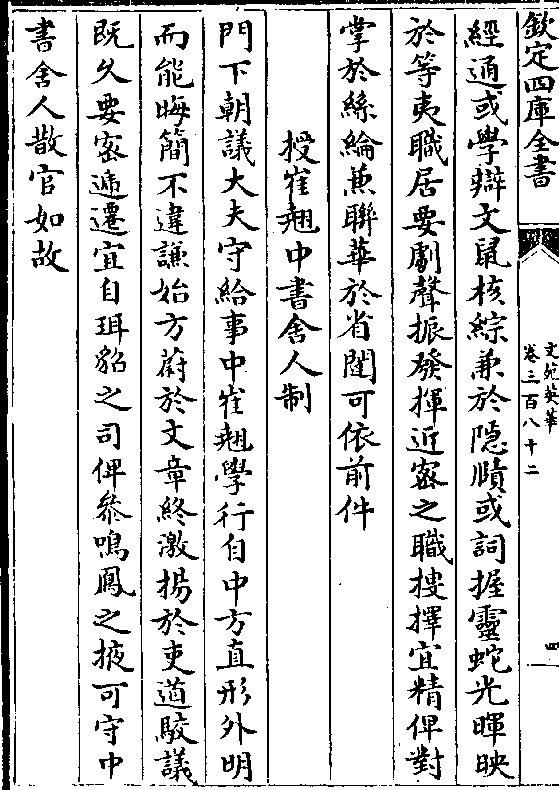 欽定四庫全書
文苑英華
卷三百八十二
四
經通或學辯文鼠核綜兼於隠賾或詞握靈蛇光暉映
於等夷職居要劇聲振發揮近宻之職搜擇宜精俾對
掌於絲綸兼聯華於省闥可依前件
授崔翹中書舍人制
門下朝議大夫守給事中崔翹學行自中方直形外明
而能晦簡不違謙始方蔚於文章終激揚於吏道駮議
既久要宻遞遷宜自珥貂之司俾叅鳴鳳之掖可守中
書舍人散官如故